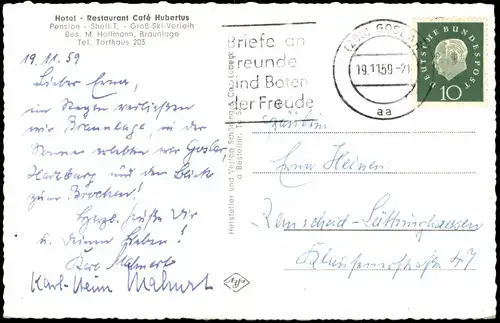 Hotel - Restaurant Café Hubertus
Pension - Shell-T. - Groß-Ski-Verleih
Bes. M. Hoffmann, Braunlage
Tel. Torfhaus 203
19.11.59
Lieber Erna,
im Regen verließen
wir Braunlage, in der
Sonne wir Goslar,
Harzburg und den Blick
zum Brocken!
Herzl. Grüße Dir
u. Deinen Lieben!
Karl
Karl-Heinz
Hersteller und Verlag Schöning & Co., Lübeck
Bestellnr.
Briefe an
Freunde
sind Boten
der Freude
(20b) GOSLAR
19.11.59-21
aa
DEUTSCHE BUNDESPOST
10
Fräulein
Erna Heinen
Remscheid-Lüttringhausen
Klausenerstraße 47